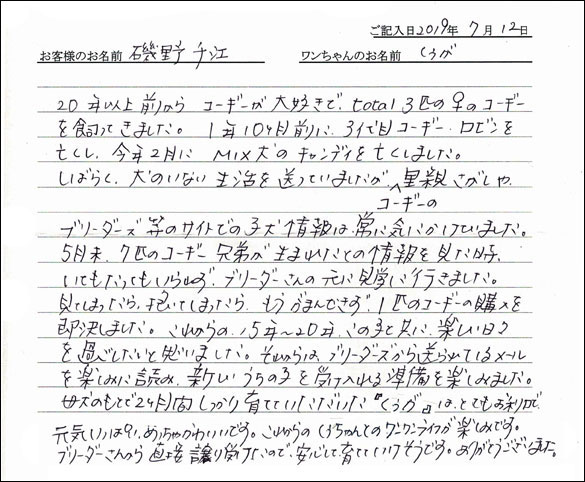 ご記入日2019年 7月 12日
お客様のお名前 磯野 千江 ワンちゃんのお名前 くうが
20年以上前から コーギーが大好きで、total 3匹の♀のコーギー
を飼ってきました。 1年10ヶ月前に、3代目コーギー・ロビンを
亡くし、今年2月に MIX犬のキャンディを亡くしました。
しばらく、犬のいない生活を送っていましたが、里親さがしや、
コーギーの
ブリーダーズ等のサイトでの子犬情報は常に気にかけていました。
5月末、7匹のコーギー兄弟が生まれたとの情報を見た時、
いてもたってもいられず、ブリーダーさんの元に見学に行きました。
見てしまったら、抱いてしまったら、もうがまんできず、1匹のコーギーの購入を
即決しました。これからの、15年〜20年、この子と共に、楽しい日々
を過ごしたいと思いました。それからは、ブリーダーズから送られているメール
を楽しみに読み、新しいうちの子を受け入れる準備を楽しみました。
母犬のもとで2ヶ月間しっかり育てていただいた『くうが』は、とてもお利口で、
元気いっぱい、めっちゃかわいいです。これからのくうちゃんとのワンワンライフが楽しみです。
ブリーダーさんから直接譲り受けたので、安心して育てていけそうです。ありがとうございました。